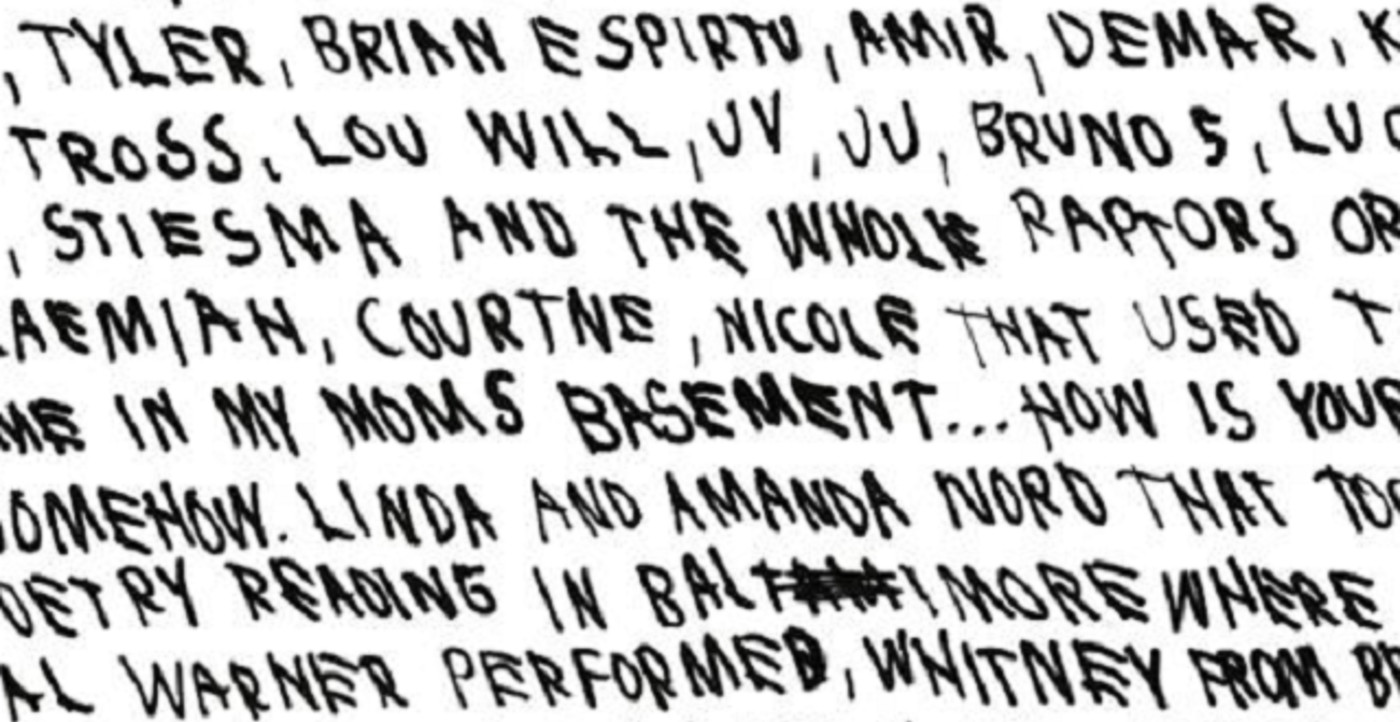 , TYLER, BRIAN ESPIRTU, AMIR, DEMAR, K
TROSS, LOU WILL, JV, JJ, BRUNO 5, LU
, STIESMA AND THE WHOLE RAPTORS OR
AEMIAH, COURTNE, NICOLE THAT USED T
ME IN MY MOMS BASEMENT... HOW IS YOUR
OMEHOW. LINDA AND AMANDA NORD THAT TOO
OETRY READING IN BALTIMORE WHERE
AL WARNER PERFORMED, WHITNEY FROM BR